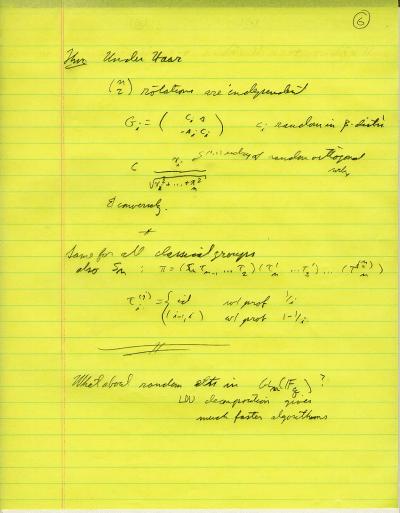 6
Thm Under Haar
(n 2) rotations are independent
G_i = ( c_i s / -s_i c_i ) c_i random in β-distri
random orthogonal
√x_1^2 + ... + x_n^2
& conversely.
Same for all classical groups
also S_n : π = (τ_n τ_n-1 ... τ_2) (τ'_n ... τ'_2) ...
τ_i^(j) = { id w/ prob 1/i
(i-1, i) w/ prob 1-1/i
What about random elts in GL_n(F_q) ?
LDU decomposition gives
much faster algorithms